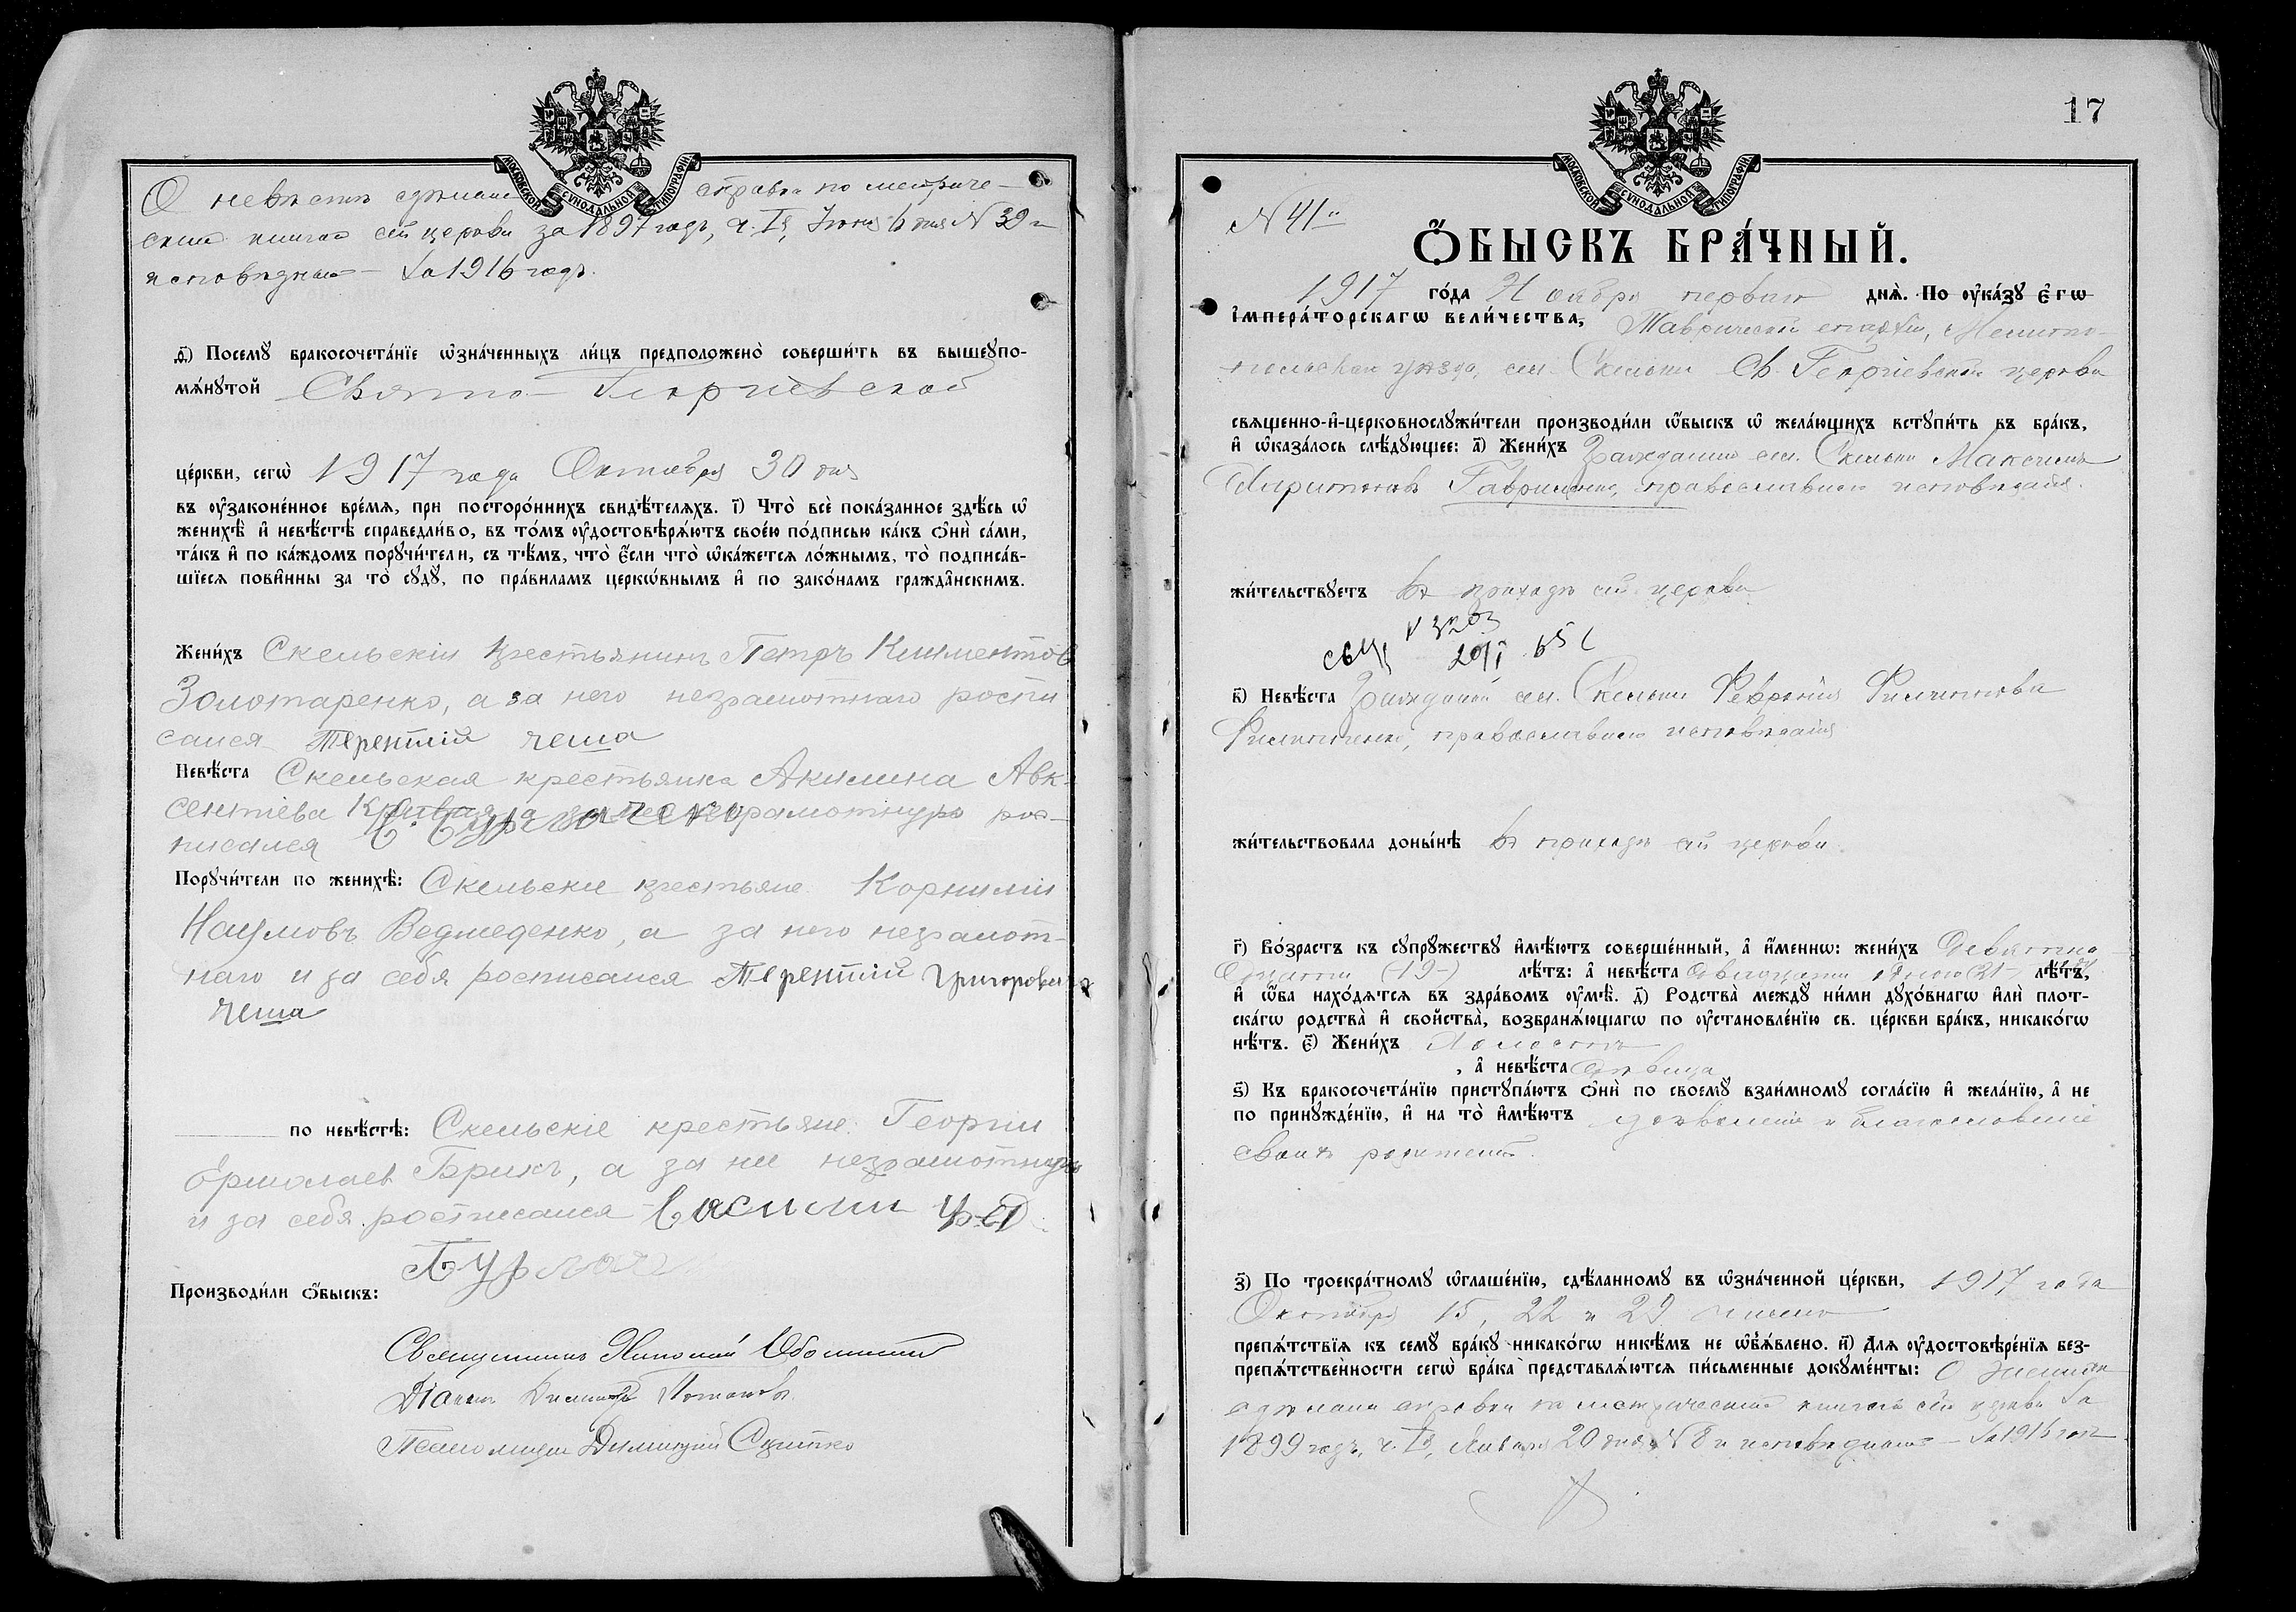 МОСКОВСКОЙ СѴНОДАЛЬНОЙ ТИПОГРАФІИ
О невѣстѣ сдѣлана справка по метриче-
скимъ книгамъ сей церкви за 1897 годъ, ч. Iя, Іюня 6 дня № 39 и
исповѣднымъ — за 1916 годъ.
ѳ҃) Посемꙋ̀ бракосочета́нїе ѡ҆зна́ченныхъ ли́цъ предположено̀ соверши́ть въ вышеꙋпо-
мѧ́нꙋтой Свято-Георгіевской
це́ркви, сегѡ̀ 1917 года Октября 30 дня
въ ᲂу҆зако́ненное вре́мѧ, при посторо́ннихъ свидѣ́телѧхъ. і҃) Что̀ всѐ пока́занное здѣ́сь ѡ҆
женихѣ̀ и҆ невѣ́стѣ справедли́во, въ то́мъ ᲂу҆достовѣрѧ́ютъ свое́ю по́дписью ка́къ ѻ҆нѝ са́ми,
та́къ и҆ по ка́ждомъ порꙋчи́тели, съ тѣ́мъ, что̀ є҆́сли что̀ ѡ҆ка́жетсѧ ло́жнымъ, то̀ подписа́в-
шїесѧ пови́нны за то̀ сꙋдꙋ̀, по пра́виламъ церкѡ́внымъ и҆ по зако́намъ гражда́нскимъ.
Жени́хъ Скельскій крестьянинъ Петръ Климентов
Золотаренко, а за него неграмотнаго роспи
сался Терентій Чеша
Невѣ́ста Скельская крестьянка Акилина Авк-
сентіева неграмотную рос-
писался
Порꙋчи́тели по женихѣ̀: Скельскіе крестьяне Корнилій
Наумовъ Ведмеденко, а за него неграмот-
наго и за себя росписался Терентій Григоровичъ
Чеша
по невѣ́стѣ: Скельскіе крестьяне: Георгій
Ермолаев Брикъ, а за не неграмотнуго
и за себя росписался Василий
Бурлач
Производи́ли ѻ҆́быскъ:
Священникъ Николай
Діаконъ Димитрій
Псаломщикъ Димитрій Скитко
17
МОСКОВСКОЙ СѴНОДАЛЬНОЙ ТИПОГРАФІИ
№ 41й
Ѻ҆́БЫСКЪ БРА́ЧНЫЙ.
1917 го́да Ноября перваго днѧ̀. По ᲂу҆ка́зꙋ є҆гѡ̀
і҆мпера́торскагѡ вели́чества, Таврической епархіи, Мелито-
польскаго уѣзда, сел. Скельки Св. Георгіевской церкви
свѧщенно-и҆-церковнослꙋжи́тели производи́ли ѻ҆́быскъ ѡ҆ жела́ющихъ встꙋпи́ть въ бра́къ,
и҆ ѡ҆каза́лось слѣ́дꙋющее: а҃) Жени́хъ Гражданинъ сел. Скельки Максимъ
Харитоновъ Гавриленко, православнаго исповѣданія.
жи́тельствꙋетъ въ приходѣ сей церкви
№ 3203
б҃) Невѣ́ста Гражданка сел. Скельки Февронія Филимонова
Филипченко, православнаго исповѣданія
жи́тельствовала доны́нѣ въ приходѣ сей церкви.
г҃) Во́зрастъ къ сꙋпрꙋ́жествꙋ и҆мѣ́ютъ соверше́нный, а҆ и҆́меннѡ: жени́хъ девятна-
дцати (19) лѣ́тъ: а҆ невѣ́ста двадцати одного (21) лѣ́тъ,
и҆ ѻ҆́ба нахо́дѧтсѧ въ здра́вомъ ᲂу҆мѣ̀. д҃) Родства̀ междꙋ̀ ни́ми дꙋхо́внагѡ и҆лѝ плот-
ска́гѡ родства̀ и҆ сво́йства̀, возбранѧ́ющагѡ по ᲂу҆становле́нїю св. це́ркви бра́къ, никако́гѡ
нѣ́тъ. є҃) Жени́хъ Холостъ
, а҆ невѣ́ста дѣвица
ѕ҃) Къ бракосочета́нїю пристꙋпа́ютъ ѻ҆нѝ по своемꙋ̀ взаи́мномꙋ согла́сїю и҆ жела́нїю, а҆ не
по принꙋжде́нїю, и҆ на то̀ и҆мѣ́ютъ дозволеніе и благословеніе
своихъ родителей.
з҃) По троекра́тномꙋ ѡ҆глаше́нїю, сдѣ́ланномꙋ въ ѡ҆зна́ченной це́ркви, 1917 года
Октября 15, 22 и 29 числа
препѧ́тствїѧ къ семꙋ̀ бра́кꙋ никако́гѡ никѣ́мъ не ѡ҆б̾ѧ́влено. и҃) Для ᲂу҆достовѣре́нїѧ без-
препѧ́тственности сегѡ̀ бра́ка представлѧ́ютсѧ пи́сьменные докꙋме́нты: О женихѣ
сдѣлана справка по метрическимъ книгамъ сей церкви за
1899 годъ, ч. Iя, Января 20 дня № 8 и исповѣднымъ — за 1916 годъ